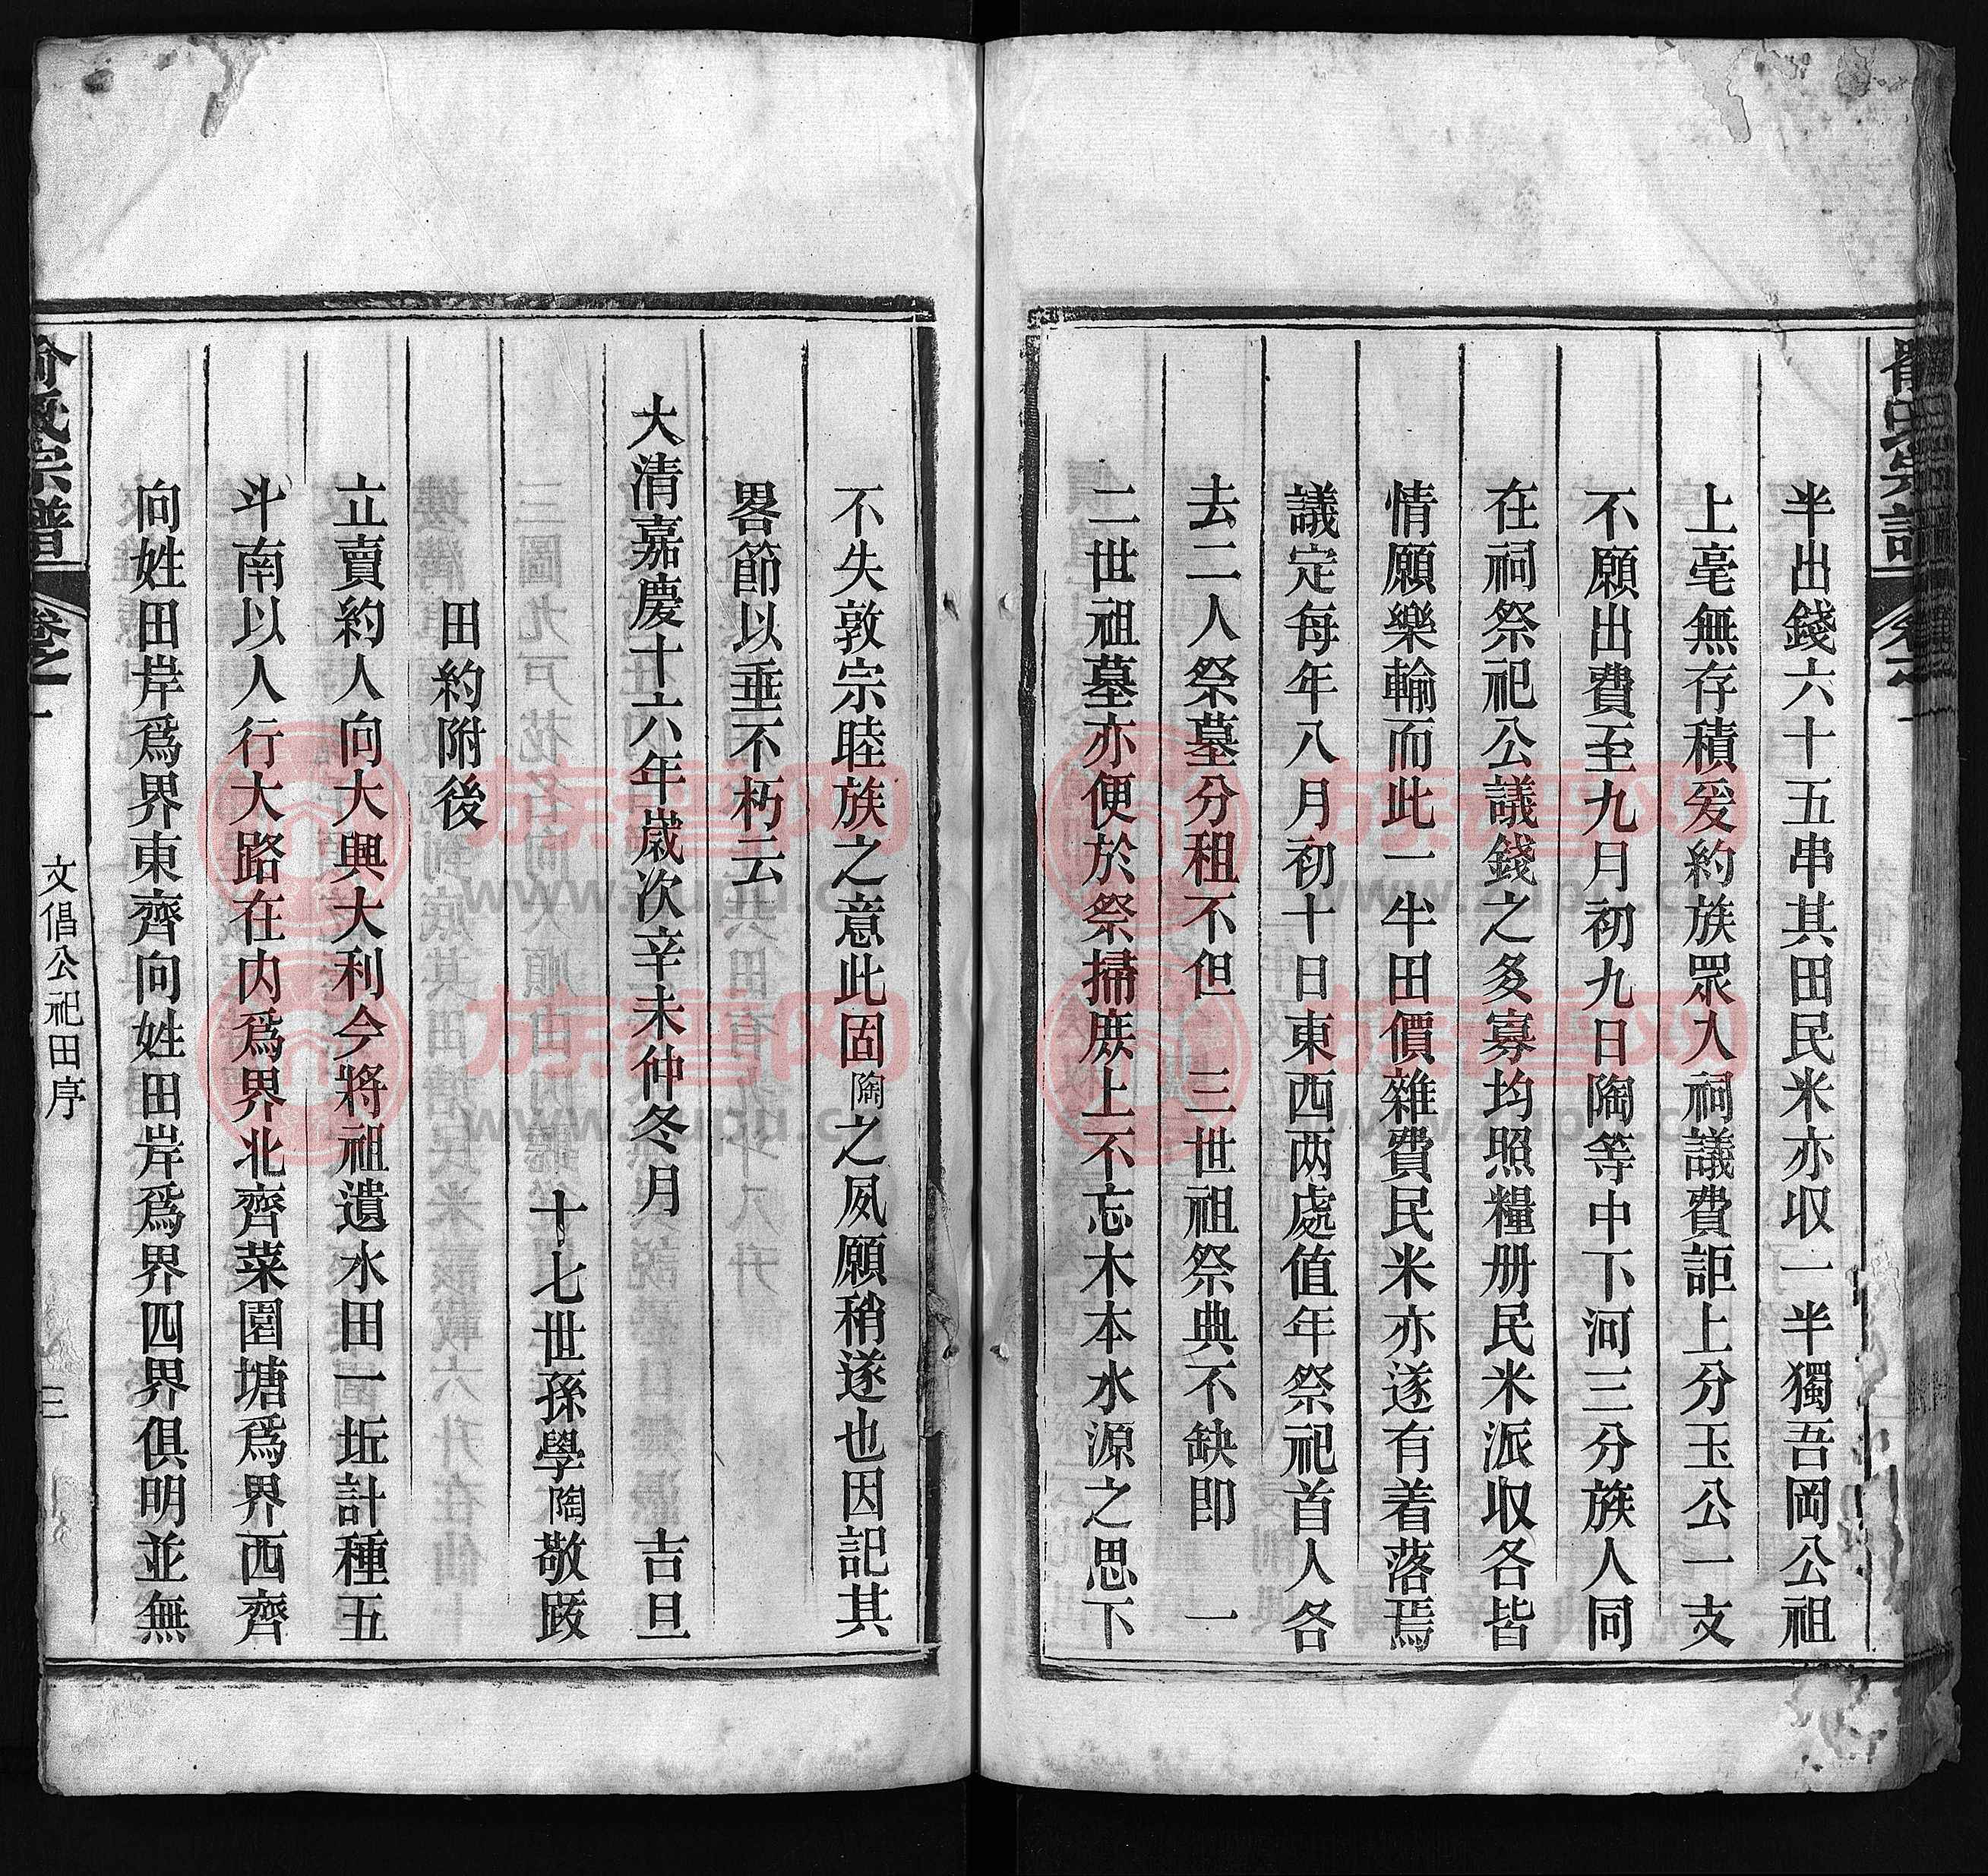 半出錢六十五串其田民米亦収一半獨吾岡公祖
上毫無存積爰約族眾入祠議費詎上分玉公一支
不願出費至九月初九日陶等中下河三分族人同
在祠祭祀公議錢之多寡均照糧册民米派収各皆
情願樂輸而此一半田價雜費民米亦遂有着落焉
議定每年八月初十日東西兩處值年祭祀首人各
去二人祭墓分租不但 三世祖祭典不缺即 一
二世祖墓亦便於祭掃庶上不忘木本水源之思下
不失敦宗睦族之意此固陶之夙願稍遂也因記其
畧節以垂不朽云
大清嘉慶十六年歲次辛未仲冬月 吉旦
十七世孫學陶敬跋
田約附後
立賣約人向大興大利今將祖遺水田一坵計種五
斗南以人行大路在内爲界北齊菜園塘爲界西齊
向姓田岸爲界東齊向姓田岸爲界四界俱明並無
氏宗譜
卷之一
文倡公祀田序
三
族譜网
www.zupu.cn
族譜网
www.zupu.cn
族譜网
www.zupu.cn
族譜网
www.zupu.cn